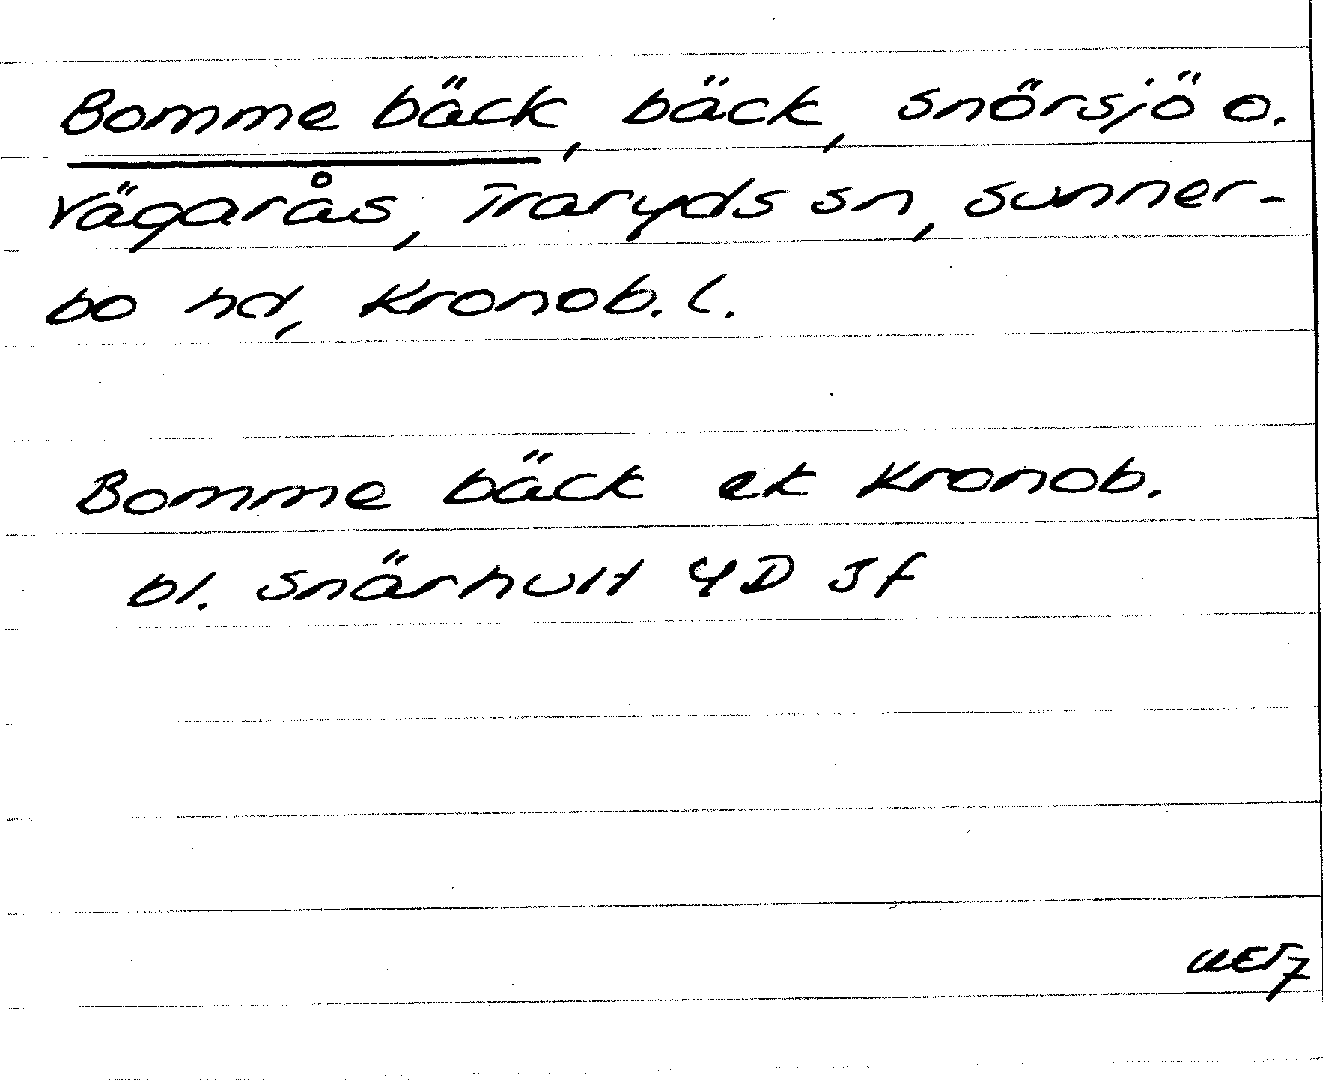 Bomme bäck, bäck, Snörsjö o.
Vägarås, Traryds sn, Sunner-
bo hd, Kronob. l.
Bomme bäck ek Kronob.
bl. Snärhult 4D 3f